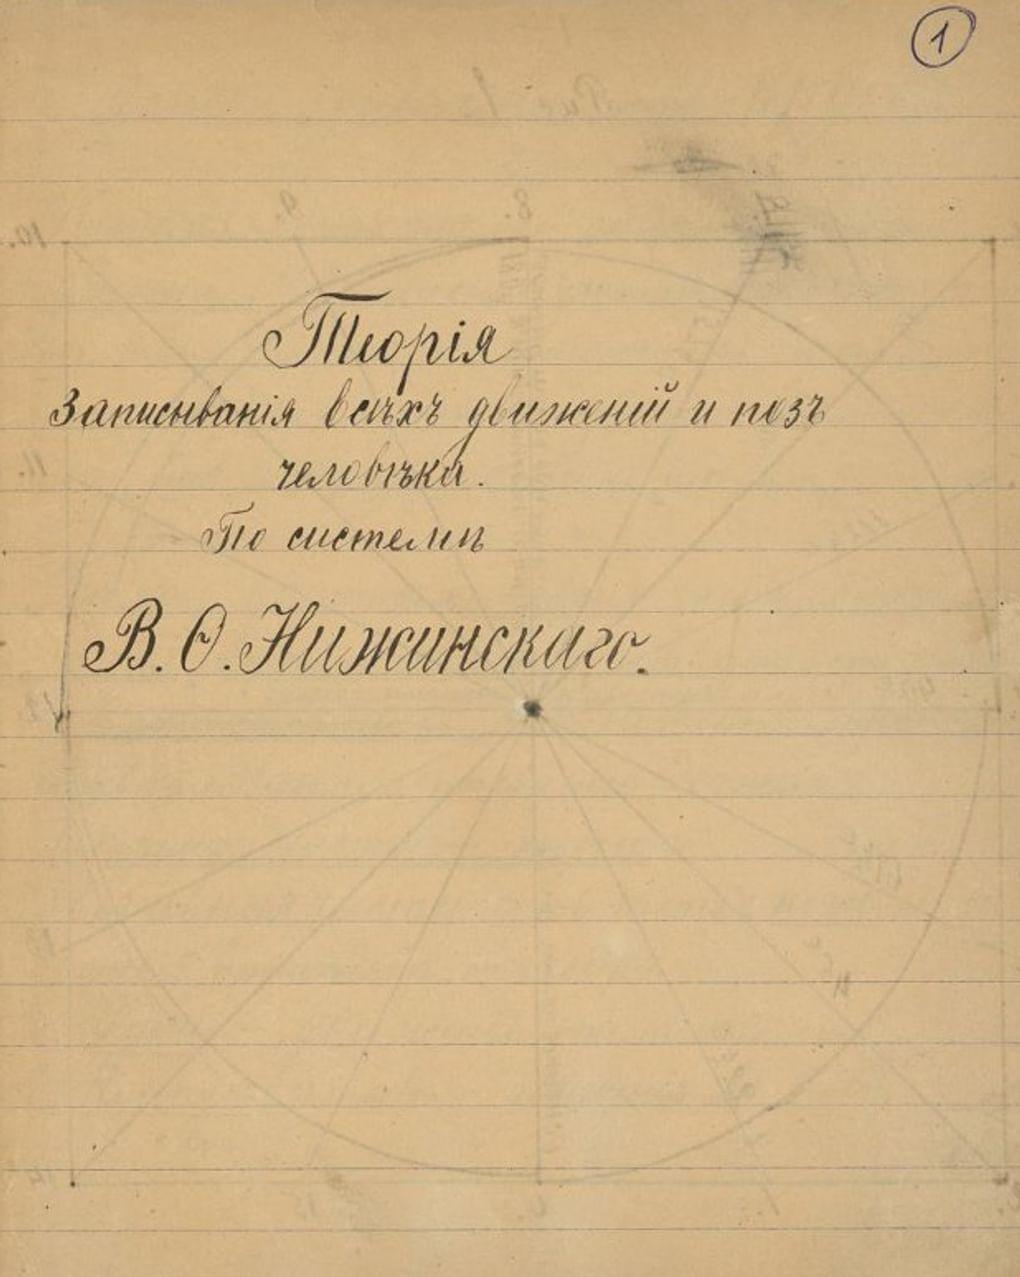 1
Теорія
Записыванія всѣхъ движеній и позъ
человѣка.
По системѣ
В. Ѳ. Нижинскаго.